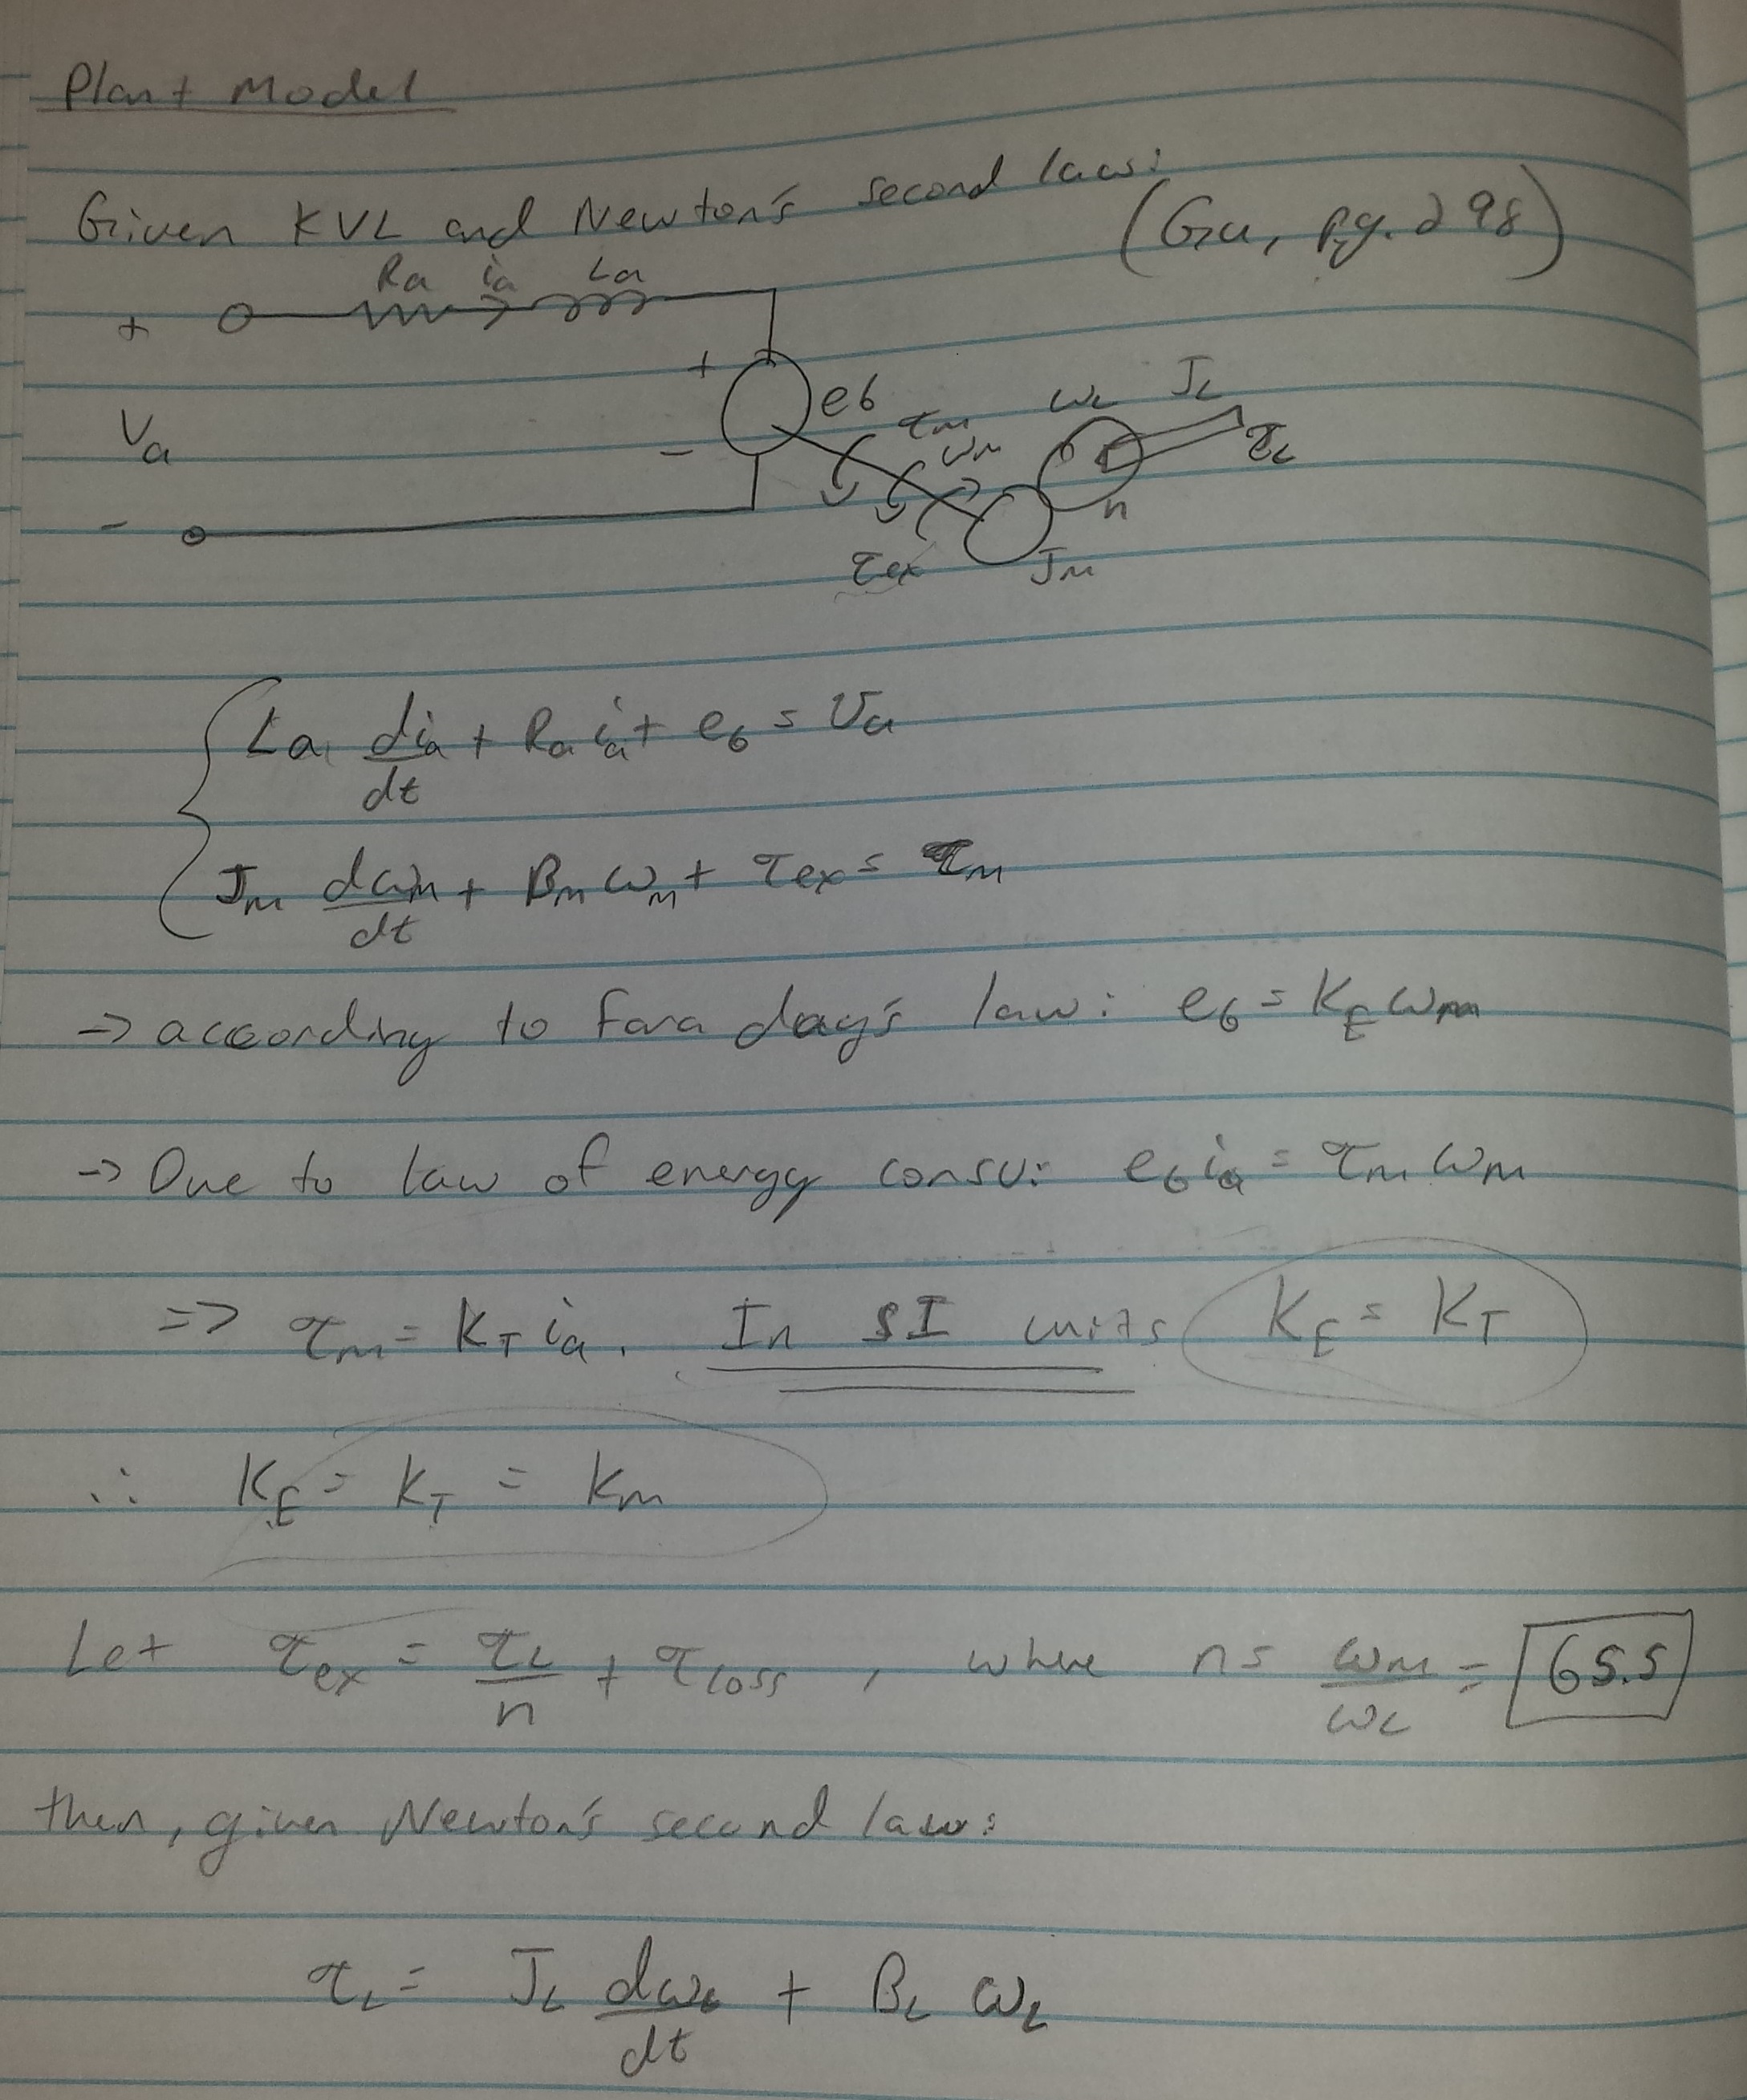 Plant Model
Given KVL and Newton's second law:
(Gu, pg. 298)
Ra ia La
+
Va
-
+
eb
-
τm
ωm
ωL JL
τL
n
τex
Jm
La dia/dt + Ra ia + eb = Va
Jm dωm/dt + Bm ωm + τex = τm
→ according to Faraday's law: eb = KE ωm
→ Due to law of energy consv: eb ia = τm ωm
=> τm = KT ia. In SI units KE = KT
∴ KE = KT = Km
Let τex = τL/n + τloss, where n = ωm/ωL = 65.5
then, given Newton's second law:
τL = JL dωL/dt + BL ωL